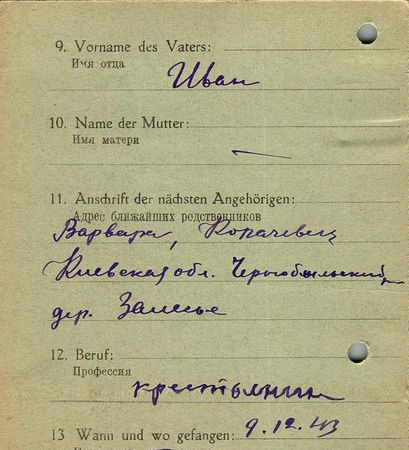 9. Vorname des Vaters:
Имя отца
Иван
10. Name der Mutter:
Имя матери
11. Anschrift der nächsten Angehörigen:
Адрес ближайших родственников
Варвара, Копачевец
Киевская обл. Чернобыльский
дер. Залесье
12. Beruf:
Профессия
крестьянин
13 Wann und wo gefangen: 9.12.43